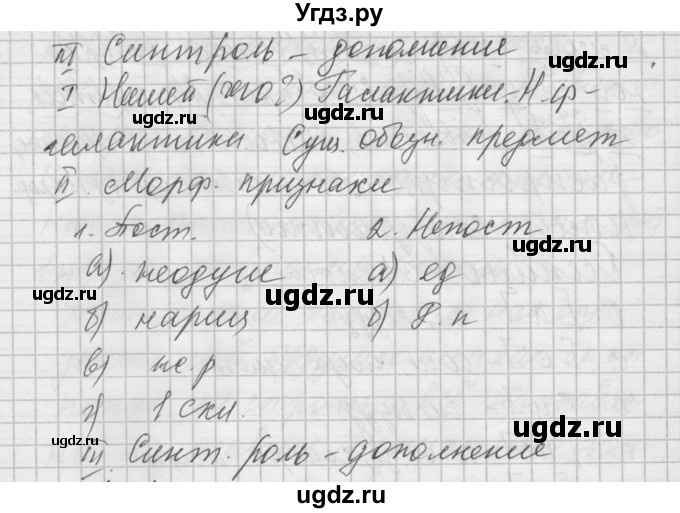 Угдз.ру
III Синт роль – дополнение
I Нашей (чего?) Галактики. Н.ф –
галактики Сущ. обозн. предмет
II. Морф. признаки
1. Пост. 2. Непост
а) неодуш а) ед
б) нариц б) Р.п
в) ж.р
г) 1 скл.
III Синт. роль – дополнение
ugdz.ru
ugdz.ru
ugdz.ru
ugdz.ru
ugdz.ru
ugdz.ru
ugdz.ru
ugdz.ru
ugdz.ru
ugdz.ru
ugdz.ru
ugdz.ru
ugdz.ru